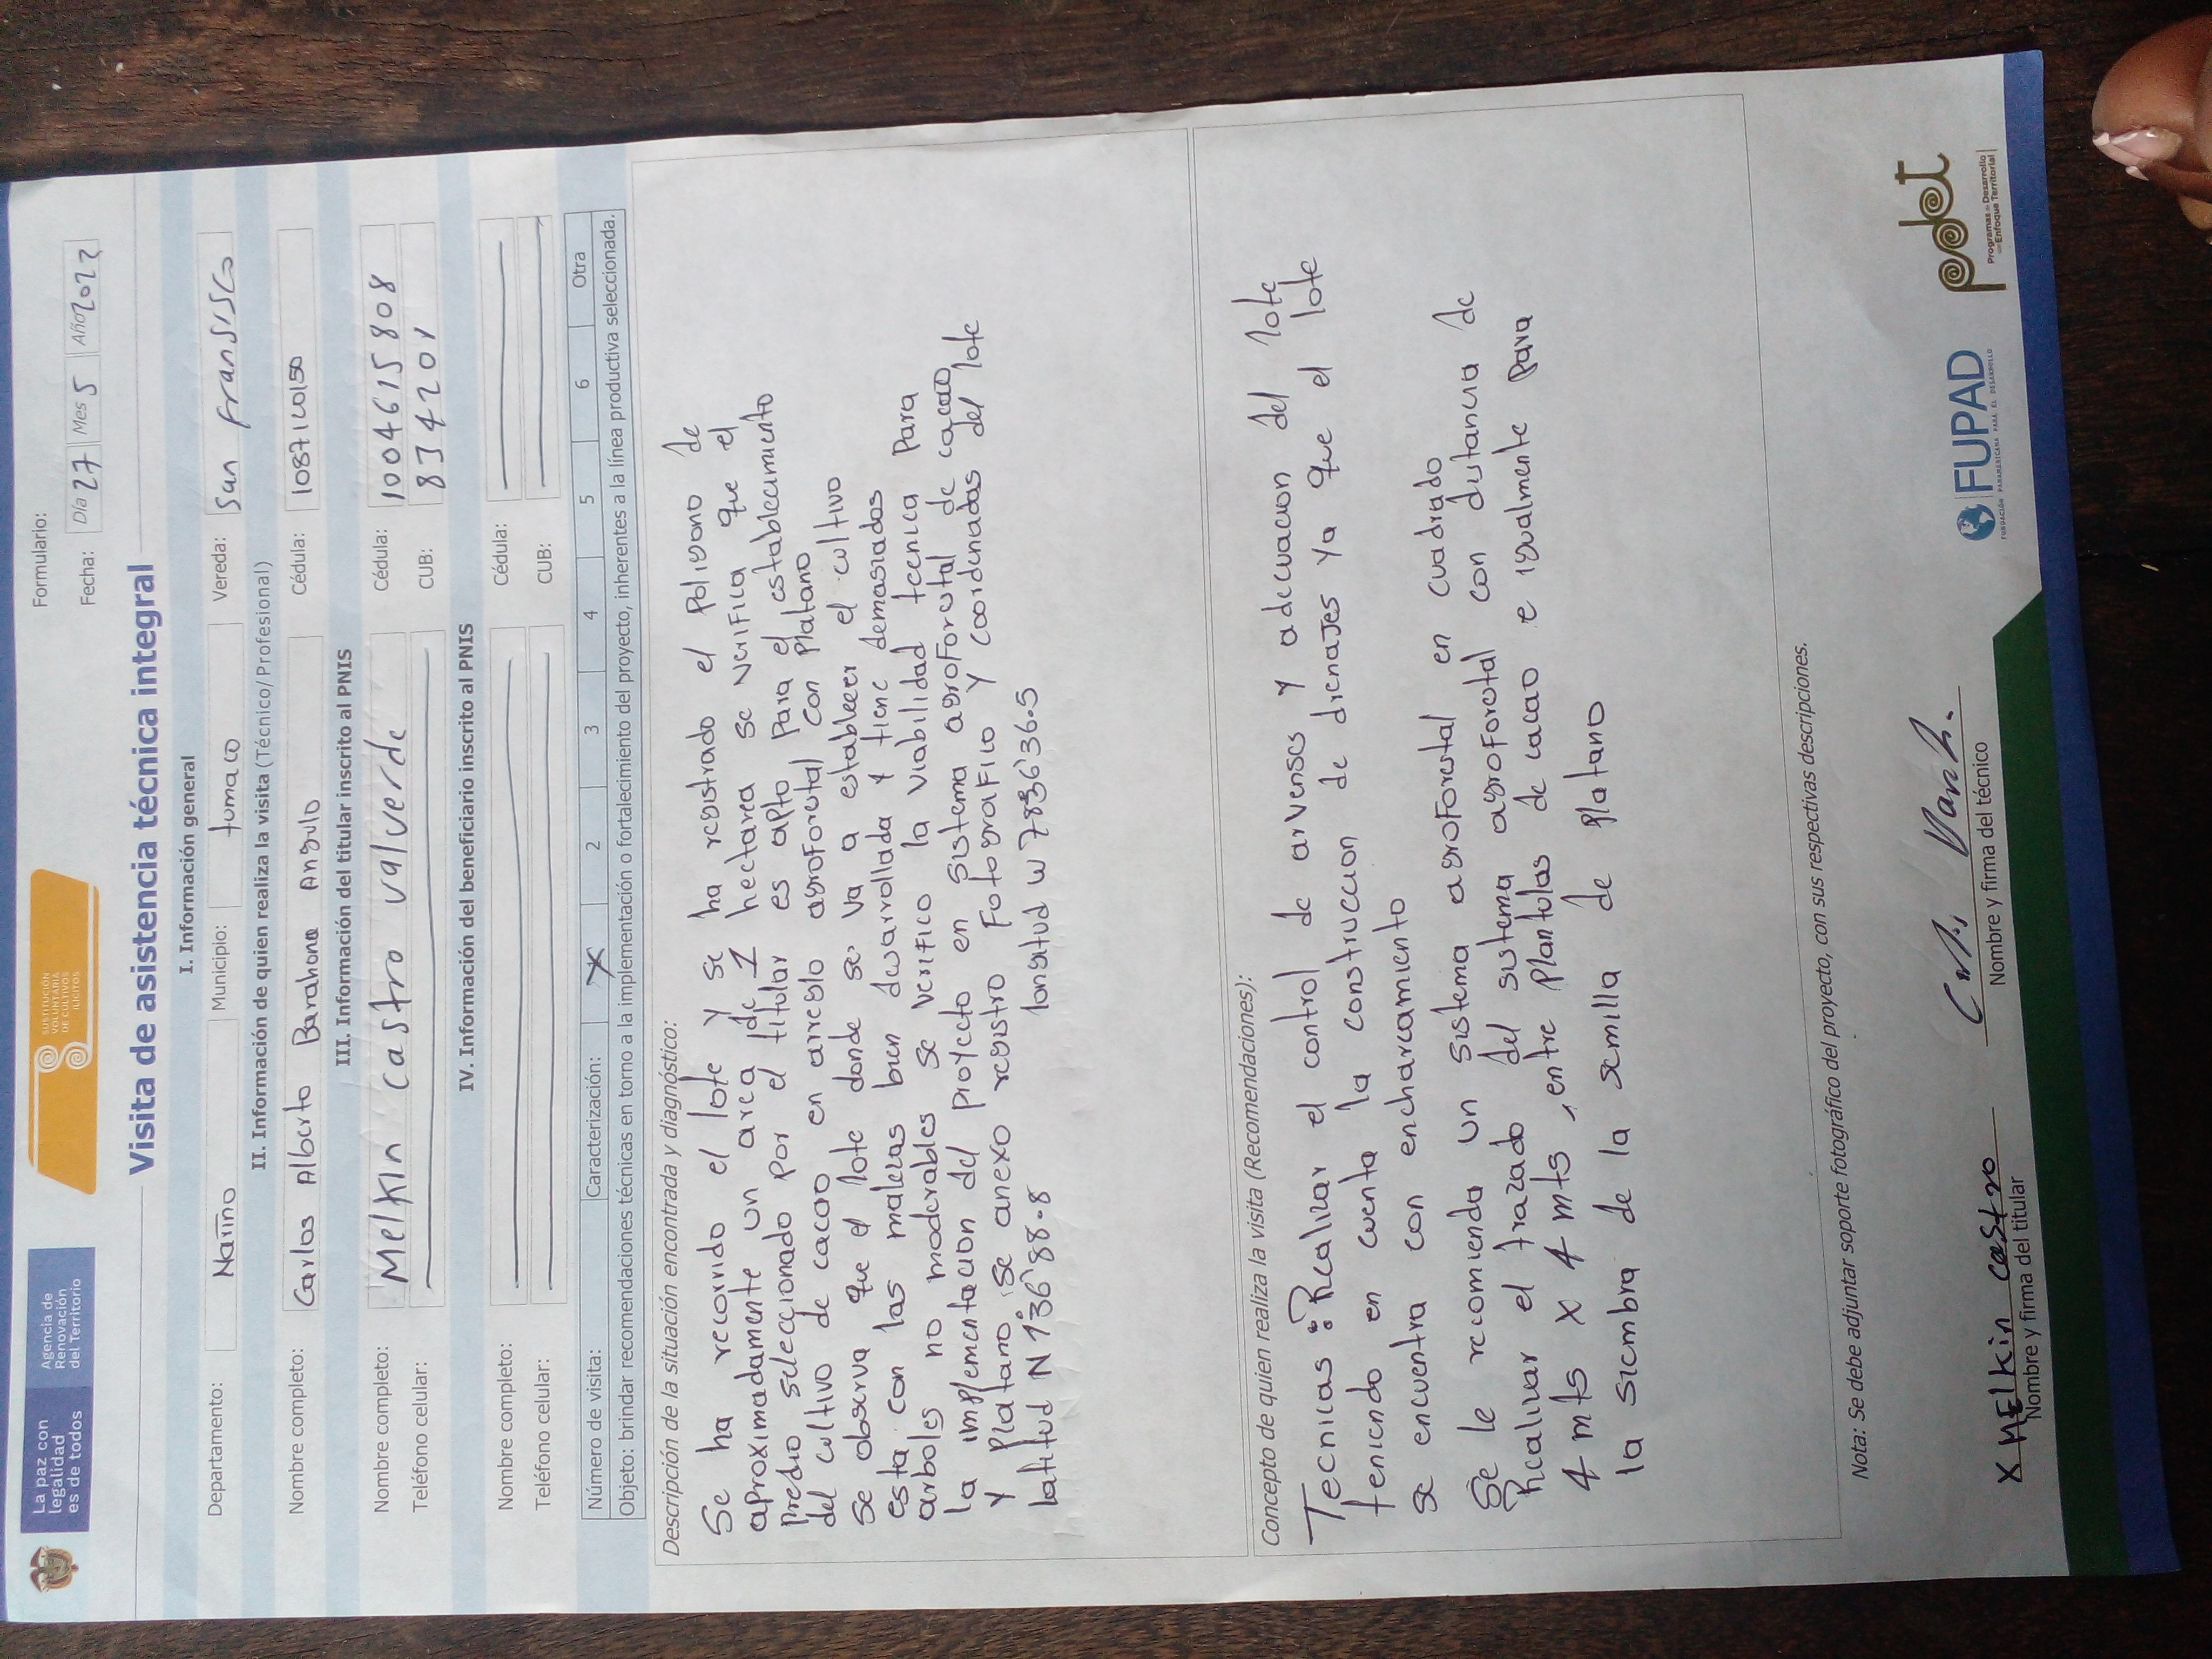 La paz con
legalidad
es de todos
Agencia de
Renovación
del Territorio
SUSTITUCIÓN
VOLUNTARIA
DE CULTIVOS
ILÍCITOS
Formulario:
Fecha: Día 27 Mes 5 Año 2022
Visita de asistencia técnica integral
I. Información general
Departamento: Nariño Municipio: tumaco Vereda: San fransisco
II. Información de quien realiza la visita (Técnico/Profesional)
Nombre completo: Carlos Alberto Barahona Angulo Cédula:
III. Información del titular inscrito al PNIS
Nombre completo: Melkin castro valverde Cédula: 1004615808
Teléfono celular: CUB: 834201
IV. Información del beneficiario inscrito al PNIS
Nombre completo: Cédula:
Teléfono celular: CUB:
Número de visita: Caracterización: X 2 3 4 5 6 Otra
Objeto: brindar recomendaciones técnicas en torno a la implementación o fortalecimiento del proyecto, inherentes a la línea productiva seleccionada.
Descripción de la situación encontrada y diagnóstico:
Se ha recorrido el lote y se ha registrado el Poligono de
aproximadamente un area de 1 hectarea se verifica que el
predio seleccionado por el titular es apto para el establecimiento
del cultivo de cacao en arreglo agroforestal con Platano
Se observa que el lote donde se va a establecer el cultivo
esta con las malezas bien desarrollada y tiene demasiados
arboles no moderables se verifico la viabilidad tecnica Para
la implementacion del proyecto en sistema agroforestal de cacao
y Platano se anexo registro Fotografico y coordenadas del lote
latitud N 1°36'88.8 longitud W 78°36'36.5
Concepto de quien realiza la visita (Recomendaciones):
Tecnicas: Realizar el control de arvenses y adecuacion del lote
teniendo en cuenta la construccion de drenajes ya que el lote
se encuentra con encharcamiento
Se le recomienda un sistema agroforestal en cuadrado
Realizar el trazado del sistema agroforestal con distancia de
4 mts x 4 mts, entre plantulas de cacao e igualmente para
la siembra de la semilla de platano
Nota: Se debe adjuntar soporte fotográfico del proyecto, con sus respectivas descripciones.
X MELKin castro
Nombre y firma del titular
Nombre y firma del técnico
FUPAD
FUNDACIÓN PANAMERICANA PARA EL DESARROLLO
pdet
Programas de Desarrollo
con Enfoque Territorial